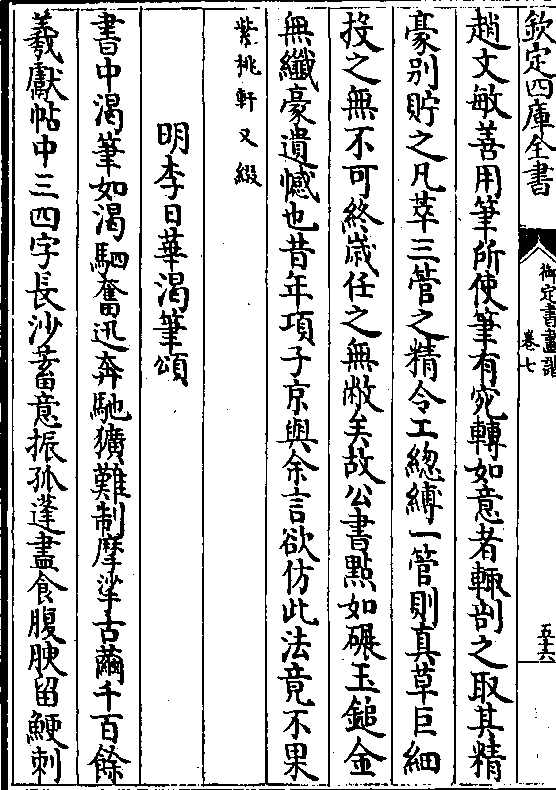 欽定四庫全書
御定書畫譜
卷七
五六
趙文敏善用筆所使筆有宛轉如意者輒剖之取其精
豪别貯之凡萃三管之精令工總縛一管則真草巨細
投之無不可終歲任之無敝矣故公書點如碾玉鎚金
無纖豪遺憾也昔年項子京與余言欲仿此法竟不果
紫桃軒又綴
明李日華渴筆頌
書中渴筆如渴驷奮迅奔馳獷難制摩挲古繭千百餘
羲獻帖中三四字長沙蓄意振孤蓬盡食腹腴留鯁刺